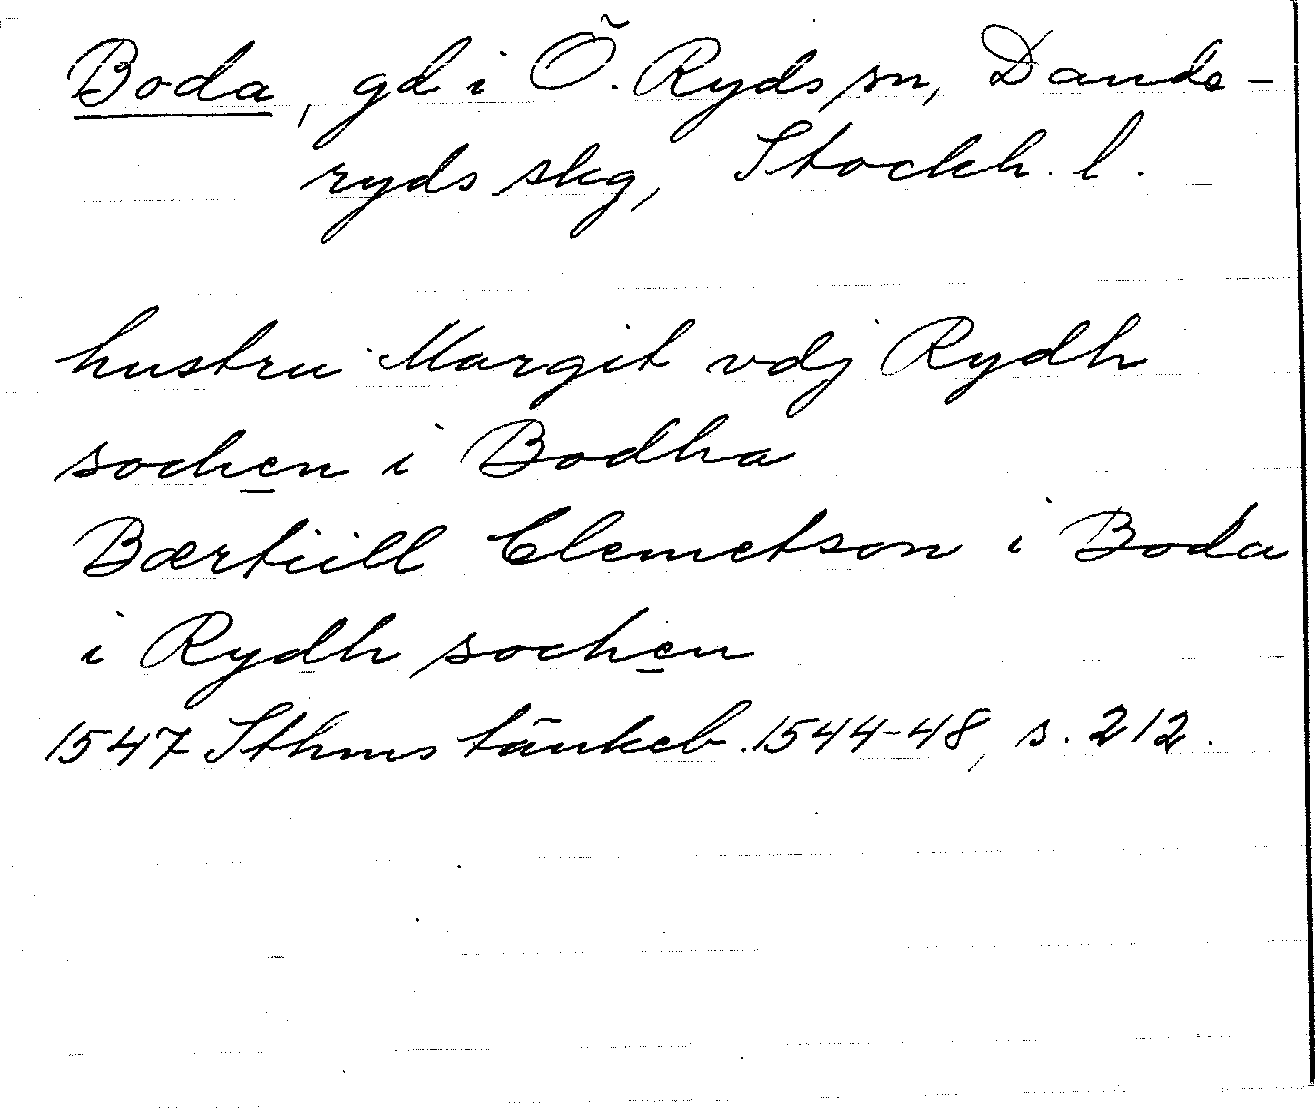 Boda, gd i Ö. Ryds sn, Dande-
ryds skg, Stockh. l.
hustru Margit vdj Rydh
sochen i Bodha
Bærtiill Clemetson i Boda
i Rydh sochen
1547 Sthms tänkeb. 1544-48, s. 212.